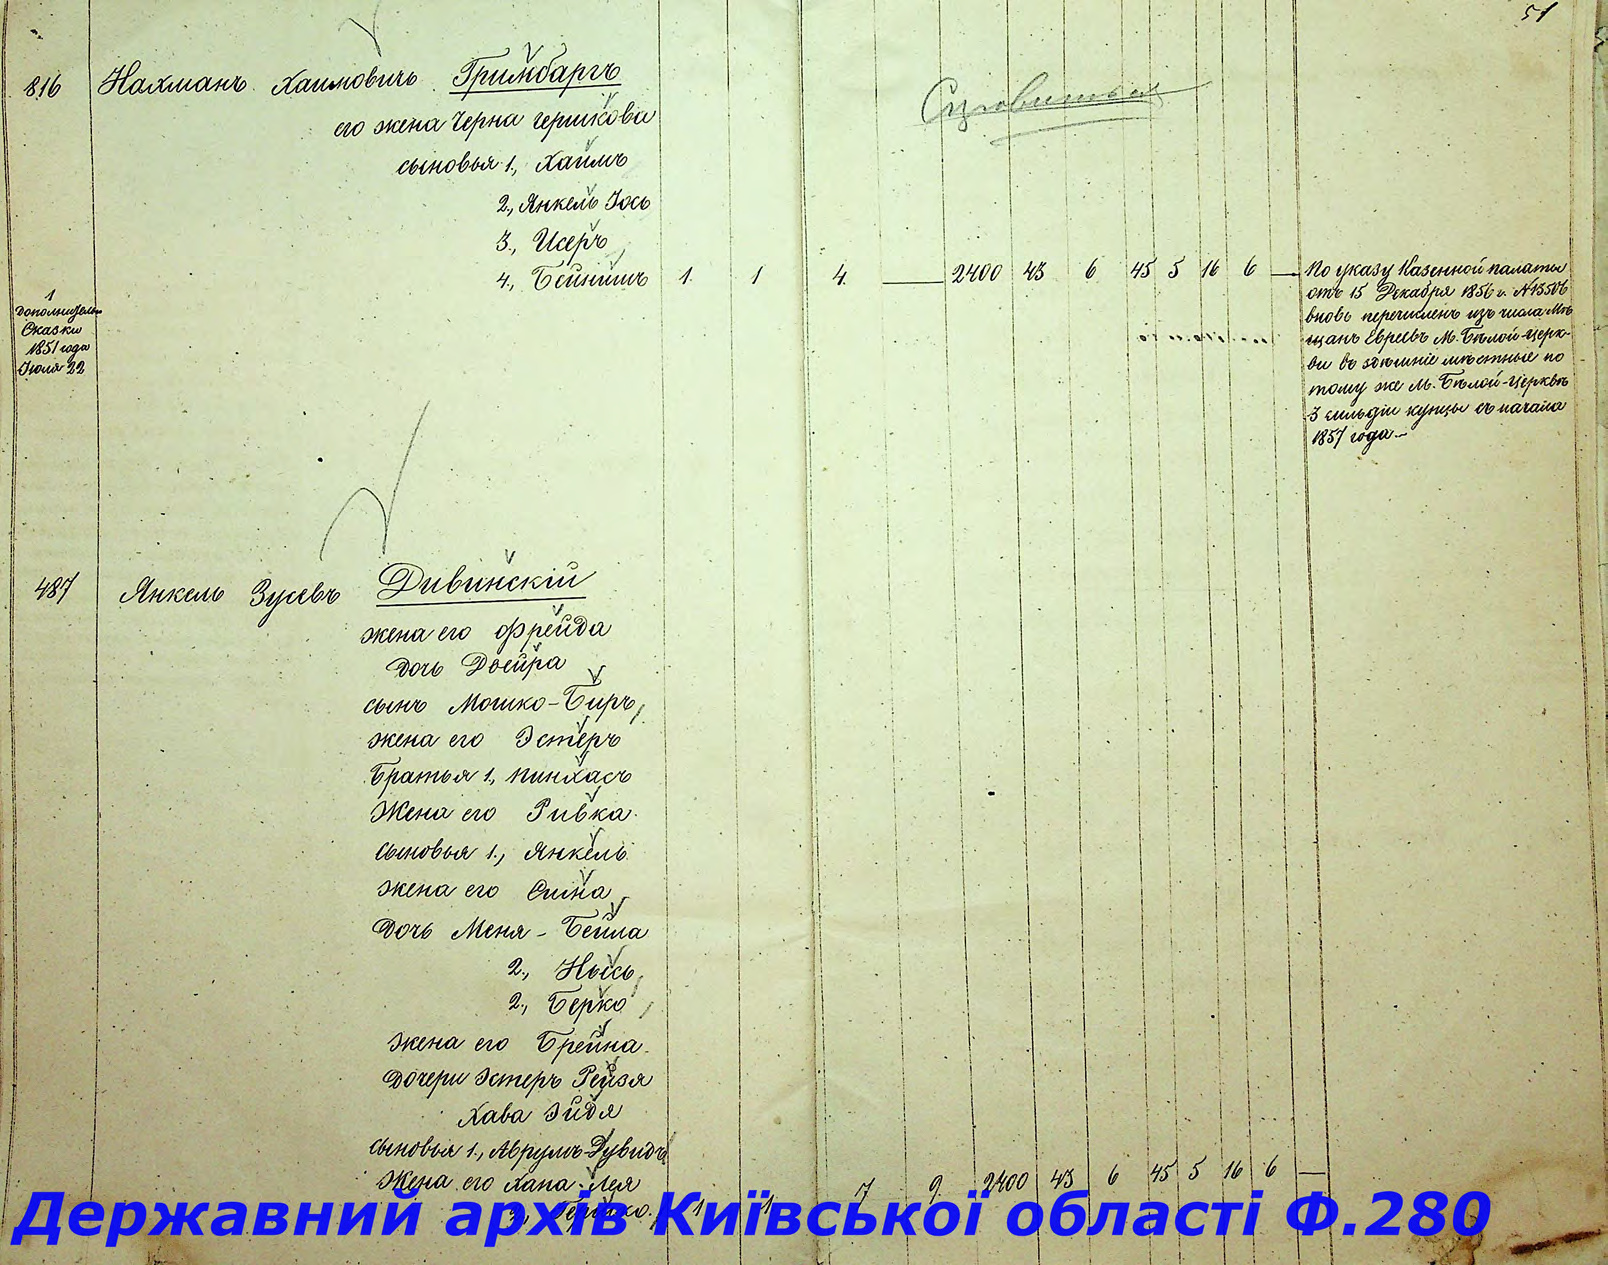 51
816 Нахманъ Хаимовичъ Гримбаргъ
его жена Черна Гершкова
сыновья 1., Хаимъ
2., Янкель Іось
3., Исеръ
4., Бейнишъ 1. 1 4. — 2400 43 6 45 5 16 6 —
1
дополнительн
Сказки
1851 года
Іюля 22
По указу Казенной палаты
отъ 15 Декабря 1856 г. № 13506
вновь перечисленъ изъ числа Мѣ
щанъ Евреевъ М. Бѣлой-Церк-
ви въ здѣшніе мѣстные по
тому же М. Бѣлой-Церквѣ
3 гильдіи купцы съ начала
1857 года.—
487 Янкель Зусевъ Дивинскій
жена его Фрейда
дочь Двейра
сынъ Мошко-Биръ
жена его Эстеръ
Братья 1., Пинхасъ
Жена его Ривка
сыновья 1., Янкель
жена его Сима
Дочь Меня - Бейла
2., Нысь
2., Берко
жена его Брейна
дочери Эстеръ Рейзя
Хава Зидя
сыновья 1., Аврумъ-Дувидъ
жена его Хана-Лея
1 1 7 9 2400 43 6 45 5 16 6 —
Державний архів Київської області Ф.280